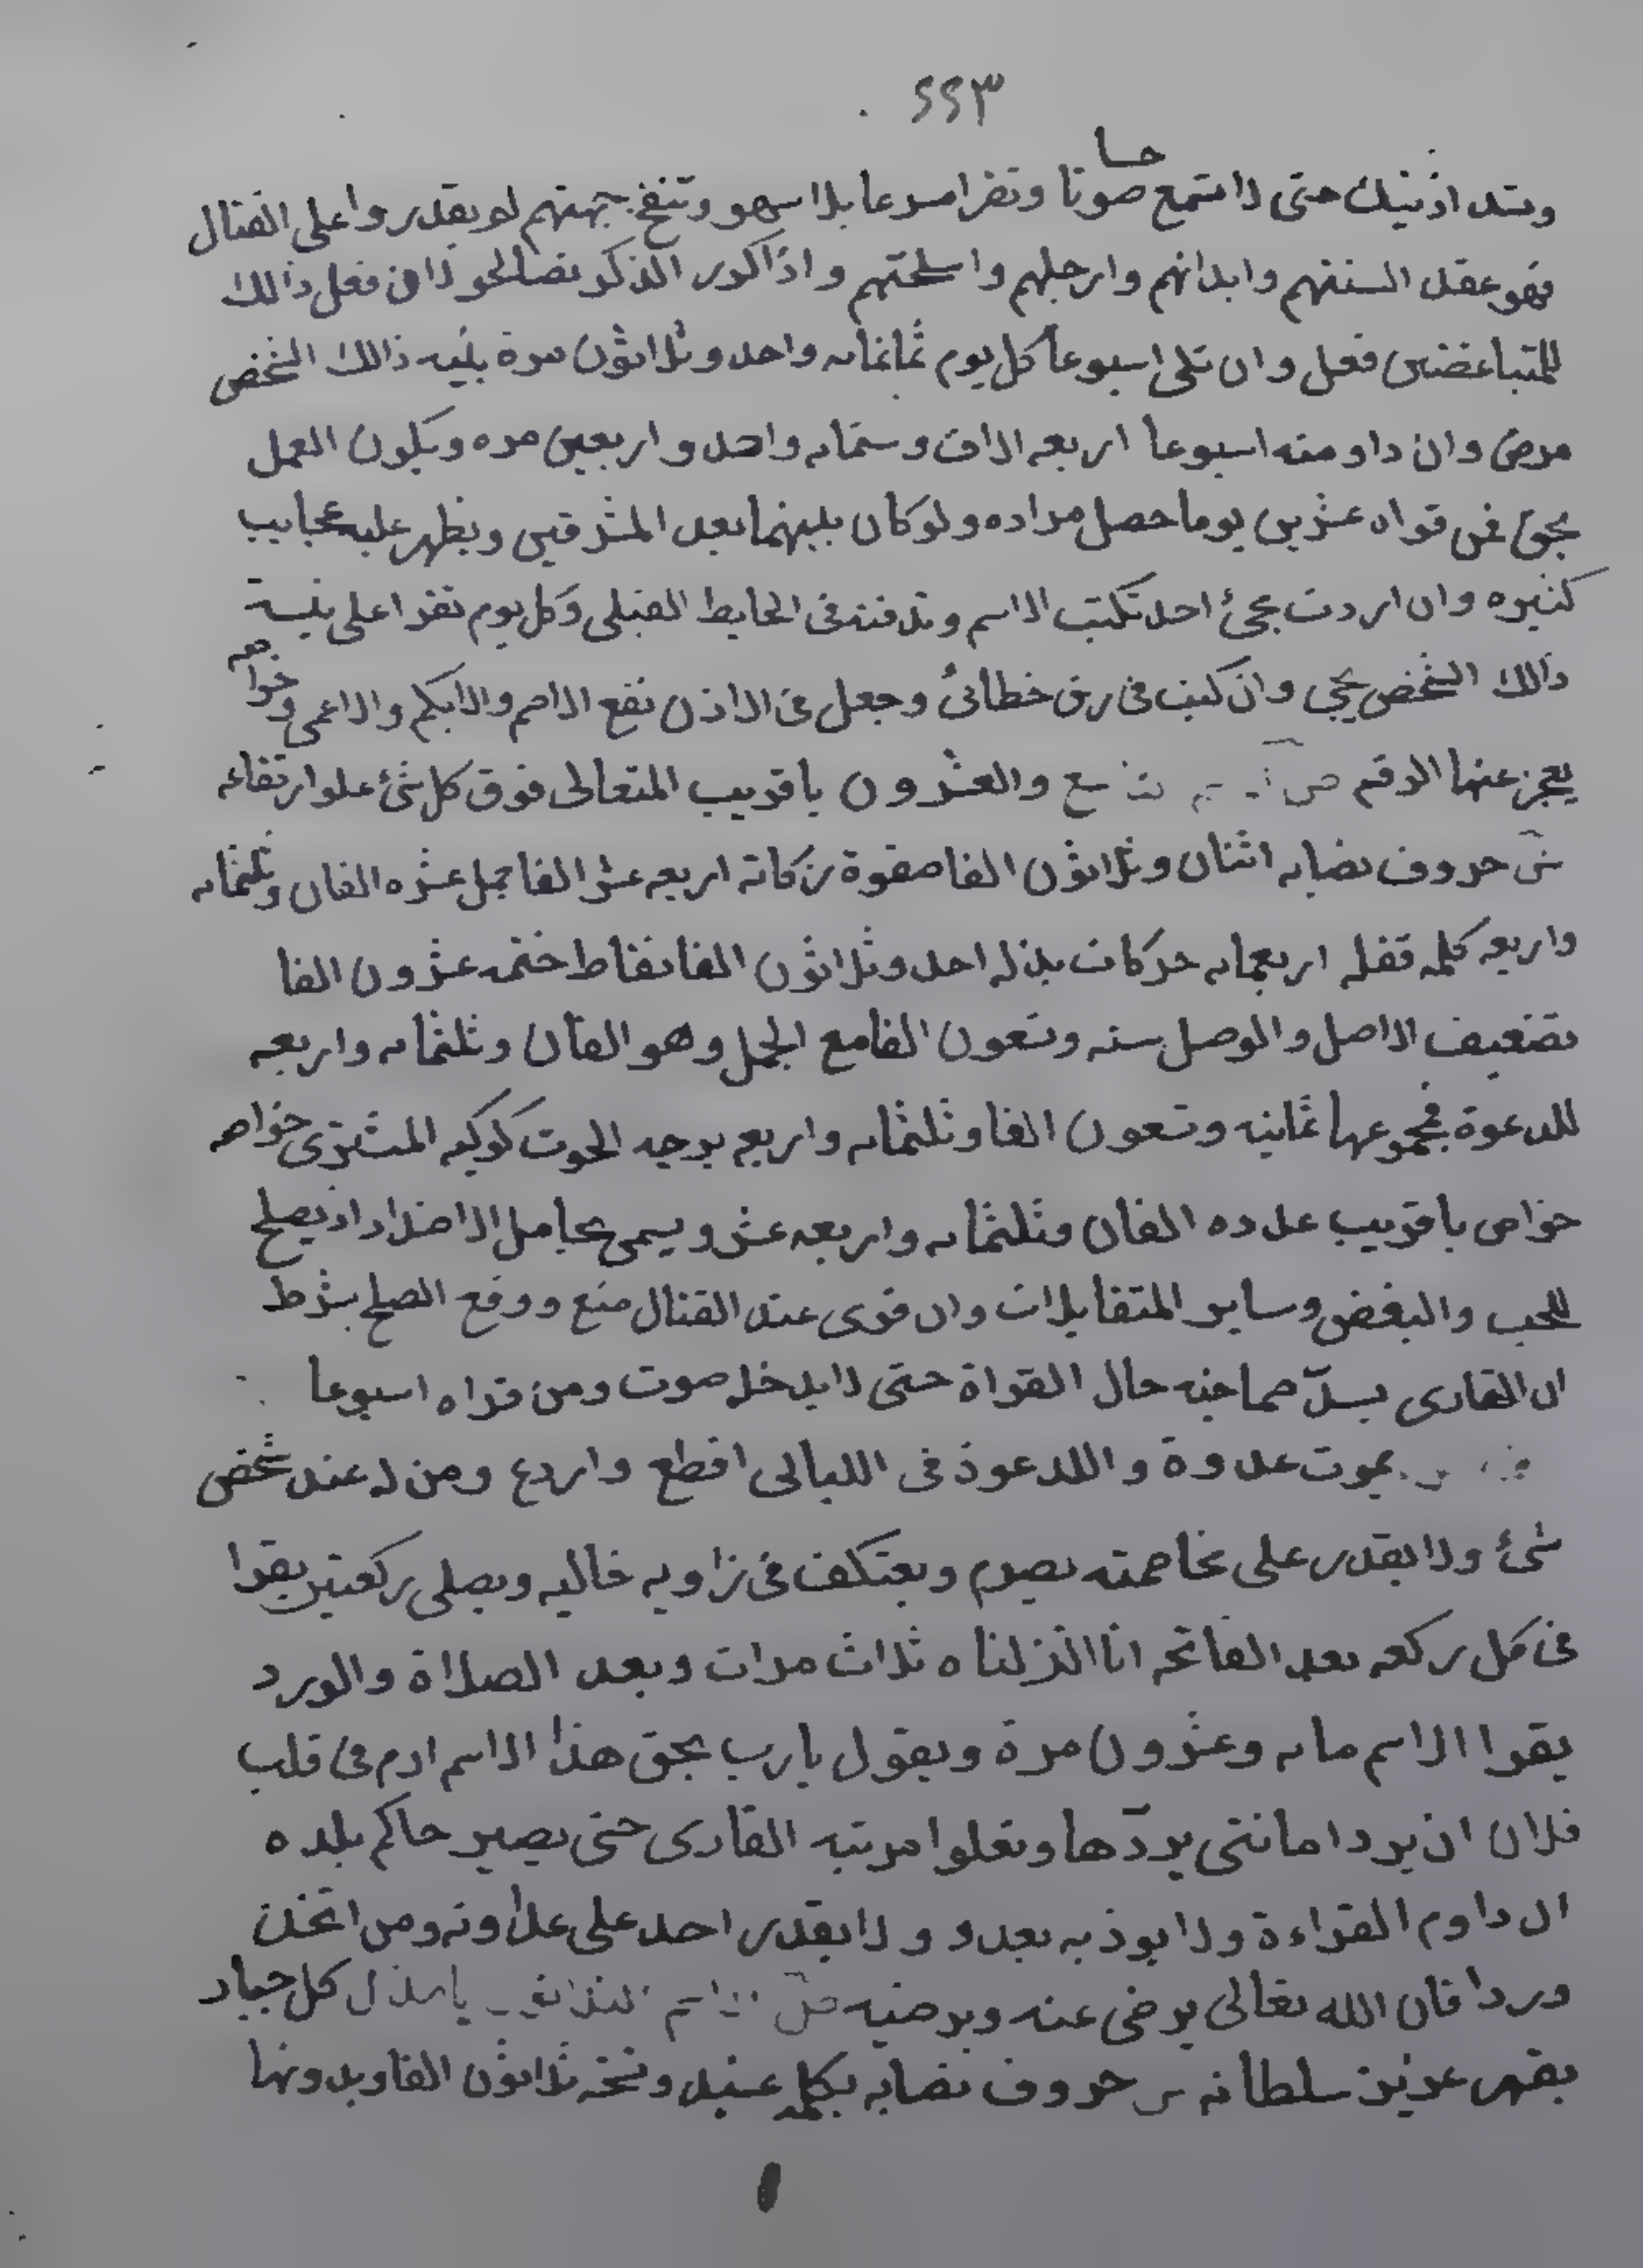 ٢٢٣
وتسد اذنيك حتى لا تسمع حسا
صوتا وتقرا مسرعا بلا سهو وتنفخ جهتهم لم يقدروا على القتال
فهو عقد السنتهم وابدانهم وارجلهم واسلحتهم واذا كرر الذكر تصالحوا فعل ذالك
للمتباغضين فعل وان تلى اسبوعا كل يوم ثمانمايه واحد وثلاثون مرة بنيه ذالك الشخص
مرض وان داومته اسبوعا اربعه الاف وستمايه واحد واربعين مره ويكون العمل
بحق فمن قراه عشرين يوما حصل مراده ولو كان بينهما بعد المشرقين ويظهر عليه عجايب
كثيره وان اردت مجئ احد تكتب الاسم وتدفنه فى الحايط القبلى وكل يوم تقرا على نية
ذالك الشخص يجى وان كتب فى رق خطائى وجعل فى الاذن نفع الاصم والابكم والاعمى وخواصه
يعجز عنها الرقم والعشرون يا قريب المتعالى فوق كل شئ علو ارتفاعه
حروف نصابه اثنان وثلاثون الفا صفوة زكاته اربعه عشر الفا جمل عشره الفان وثلثمايه
واربعه كلمه قفله اربعمايه حركات بذله احد وثلاثون الفا نقاط ختمه عشرون الفا
تضعيف الاصل والوصل سته وتسعون الفا مع الجمل وهو الفان وثلثمايه واربعه
للدعوة فمجموعها ثمانيه وتسعون الفا وثلثمايه واربعه برجه الحوت كوكبه المشترى خواصه
خواص يا قريب عدده الفان وثلثمايه واربعه عشر ويسمى بجامل الاضداد اذ يصلح
للحب والبغض وساير المتقابلات وان قرى عند القتال منع ووقع الصلح بشرط
ان القارى يسدّ صماخيه حال القراة حتى لا يدخله صوت ومن قراه اسبوعا
يموت عدوة والدعوة فى الليالى اقطع واردع ومن له عند شخص
شئ ولا يقدر على مخاصمته يصوم ويعتكف فى زاويه خاليه ويصلى ركعتين يقرا
فى كل ركعه بعد الفاتحه انا انزلناه ثلاث مرات وبعد الصلاة والورد
يقرا الاسم مايه وعشرون مرة ويقول يارب بحق هذا الاسم ارم فى قلب
فلان ان يرد امانتى يردّها وتعلوا مرتبه القارى حتى يصير حاكم بلده
ان داوم القراءة ولا يوذيه بعده ولا يقدر احد على عداوته ومن اتخذ
وردا فان الله تعالى يرضى عنه ويرضيه يا مذل كل جبار
بقهر عزيز سلطانه حروف نصابه بكلمه عنيد وفتحه ثلاثون الفا وبدونها